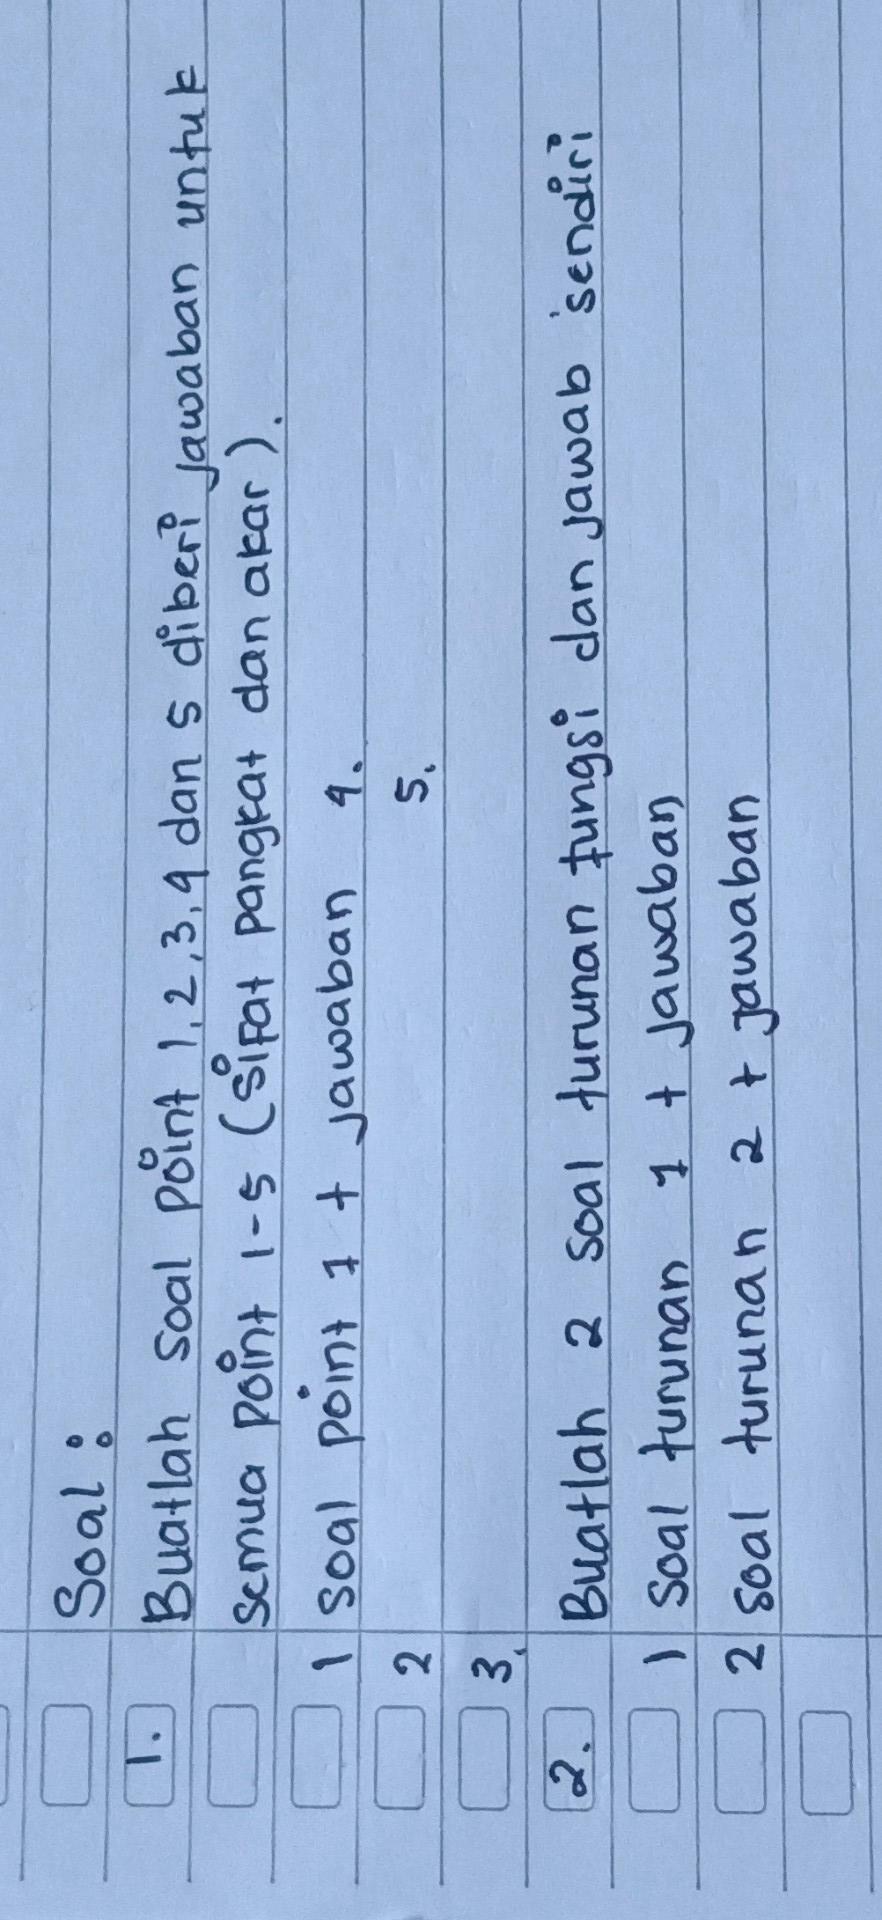 Soal :
1. Buatlah soal point 1, 2, 3, 4 dan 5 diberi jawaban untuk
semua point 1-5 (sifat pangkat dan akar).
1 soal point 1 + jawaban 4.
2 5.
3.
2. Buatlah 2 soal turunan fungsi dan jawab sendiri
1 soal turunan 1 + jawaban
2 soal turunan 2 + jawaban